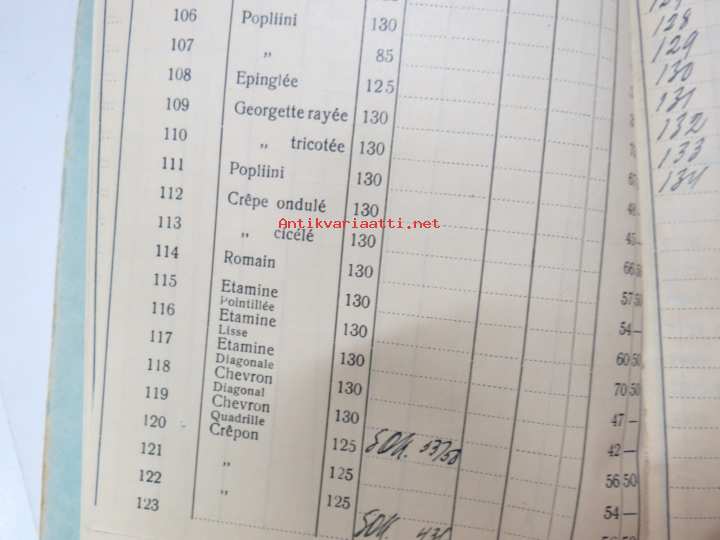 106 Popliini 130
107 „ 85
108 Epinglée 125
109 Georgette rayée 130
110 „ tricotée 130
111 Popliini 130
112 Crêpe ondulé 130 48
113 „ cicélé 130 45—
114 Romain 130 66 50
115 Etamine 130 57 50
Pointillée
116 Etamine 130 54—
Lisse
117 Etamine 130 60 50
Diagonale
118 Chevron 130 70 50
Diagonal
119 Chevron 130 47—
Quadrille
120 Crêpon 125 42—
121 „ 125 56 50
122 „ 125 54—
123
128
129
130
131
132
133
134
Antikvariaatti.net